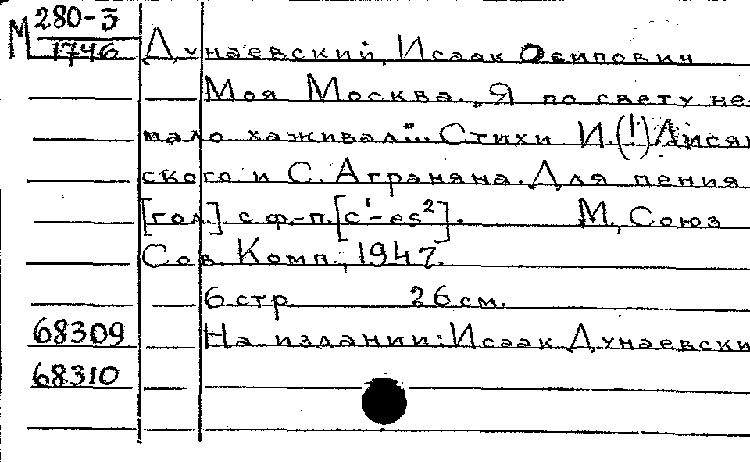 М 280-3
1746
Дунаевский, Исаак Осипович
Моя Москва. „Я по свету не-
мало хаживал"... Стихи И.(!) Лисян
ского и С. Аграняна. Для пения
[гол.] с ф.-п. [c¹-es²]. М., Союз
Сов. Комп., 1947.
6 стр. 26 см.
68309 На издании: Исаак Дунаевски
68310